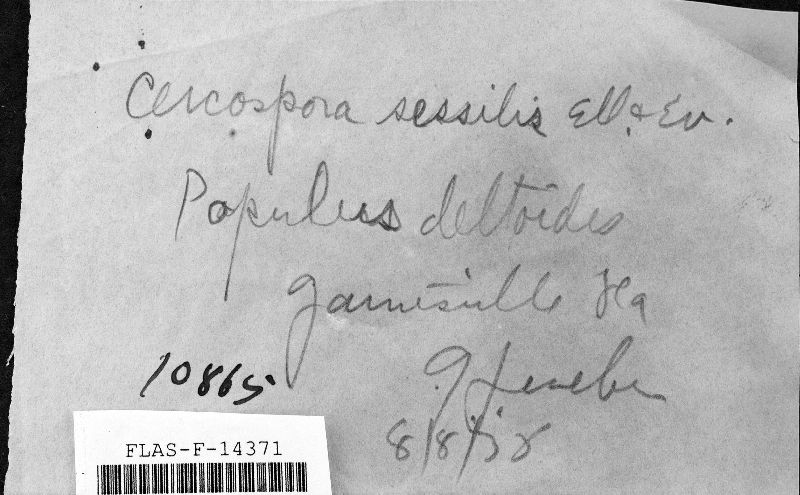 Cercospora sessilis Ell. & Ev.
Populus deltoides
Gainesville Fla
10865
8/8/38
FLAS-F-14371